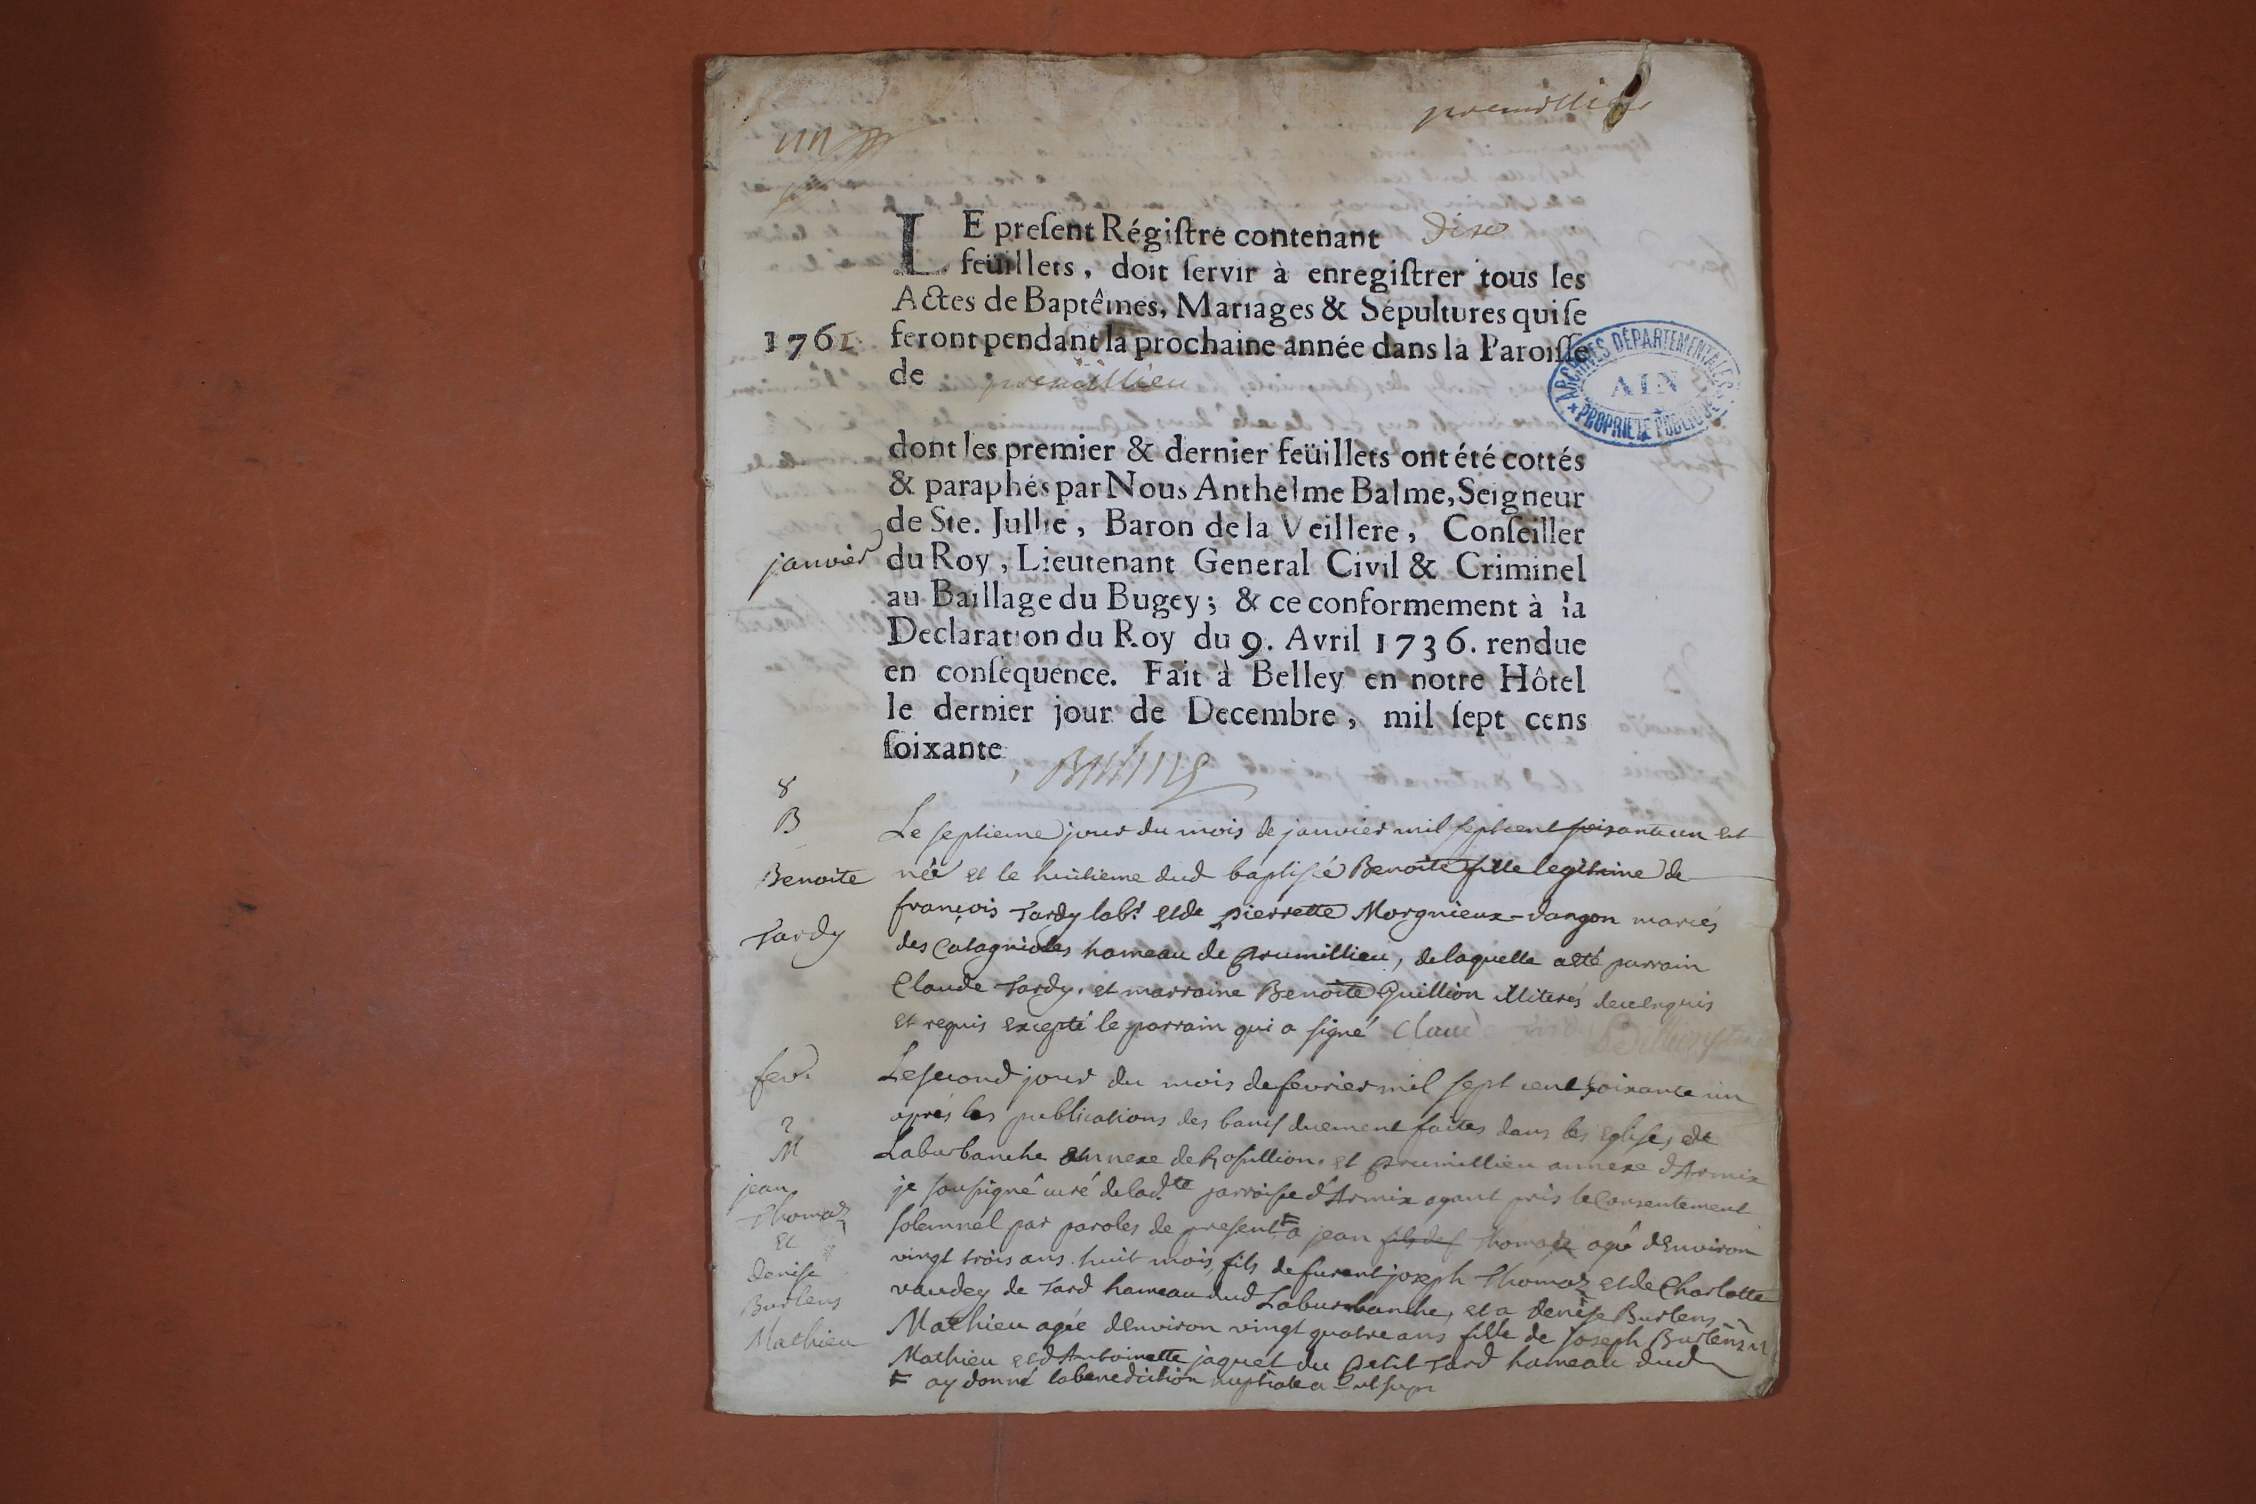 un
premillieu
LE preſent Régiſtre contenant dix
feüillets, doit ſervir à enregiſtrer tous les
Actes de Baptêmes, Mariages & Sépultures qui ſe
1761
feront pendant la prochaine année dans la Paroiſſe
de premillieu
ARCHIVES DÉPARTEMENTALES
AIN
PROPRIÉTÉ PUBLIQUE
dont les premier & dernier feüillets ont été cottés
& paraphés par Nous Anthelme Balme, Seigneur
de Ste. Jullie, Baron de la Veillere, Conſeiller
janvier
du Roy, Lieutenant General Civil & Criminel
au Baillage du Bugey; & ce conformement à la
Declaration du Roy du 9. Avril 1736. rendue
en conſequence. Fait à Belley en notre Hôtel
le dernier jour de Decembre, mil ſept cens
ſoixante
8
B
Benoite
Tardy
Le septieme jour du mois de janvier mil sept cent soixante un est
née et le huitieme dud baptisée Benoite fille legitime de
françois Tardy labr et de pierrette Morgnieux-dangon mariés
des Catagnioles hameau de Prumillieu, de laquelle a eté parrain
Claude Tardy. et marraine Benoite Guillion illiterés de ce enquis
et requis excepté le parrain qui a signé Claude
fevr.
2
M
jean
Thomaz
et
denise
Burlens
Mathieu
Le second jour du mois de fevrier mil sept cent soixante un
aprés les publications des bancs duement faites dans les eglises de
Laburbanche annexe de Rosullion. et Prumillieu annexe d'Armix
je soussigné curé de lad.te parroisse d'Armix ayant pris le Consentement
solemnel par paroles de present a jean fils de Thomaz agé d'Environ
vingt trois ans huit mois, fils de furent joseph Thomaz et de Charlotte
vaudey de Tard hameau dud Laburbanche, et a denise Burlens
Mathieu agée d'Environ vingt quatre ans fille de Joseph Burlens
Mathieu et d'Antoinette jaquet du Petit Tard hameau dud
ay donné la benediction nuptiale a